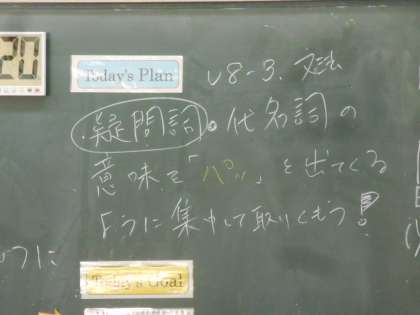 20
Today's Plan
U8-3. 文法
疑問詞。代名詞の
意味を「パッ」と出てくる
ように集中して取りくもう!
Today's Goal